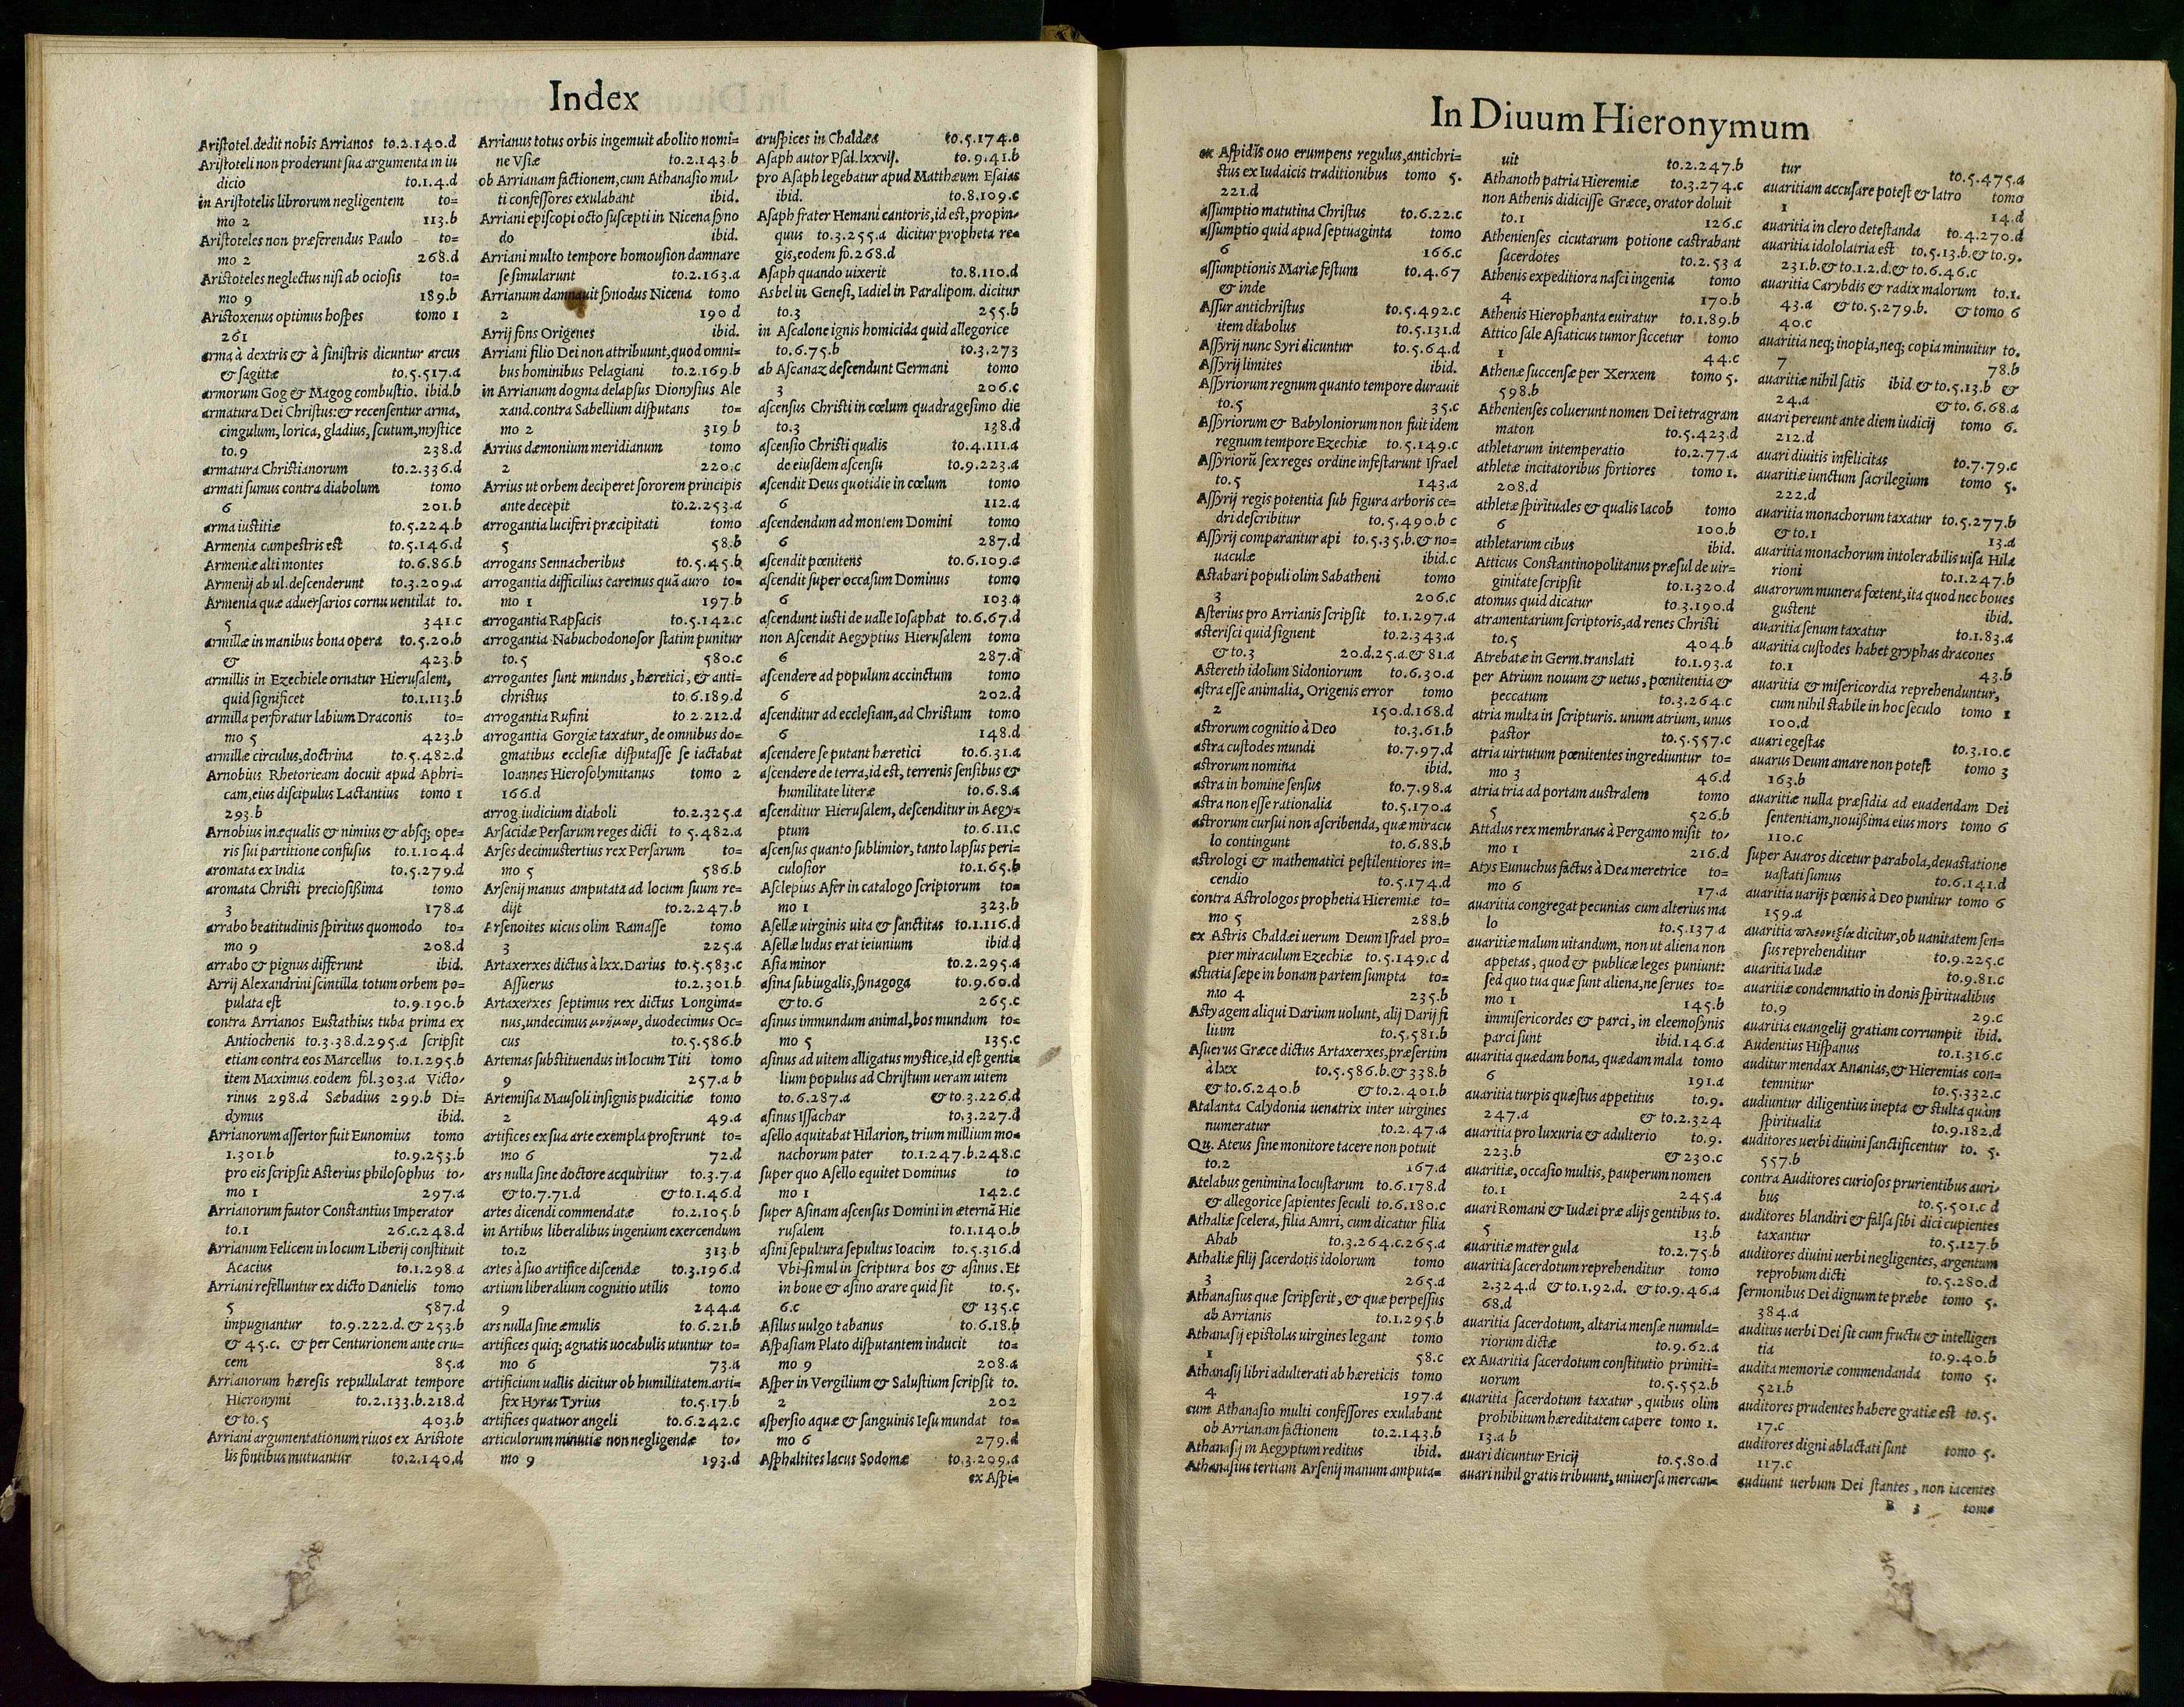 Index
Aristotel.dedit nobis Arrianos to.2.140.d
Aristoteli non proderunt sua argumenta in iu
dicio to.1.4.d
in Aristotelis librorum negligentem to=
mo 2 113.b
Aristoteles non præferendus Paulo to=
mo 2 268.d
Aristoteles neglectus nisi ab ociosis to=
mo 9 189.b
Aristoxenus optimus hospes tomo 1
261
arma à dextris & à sinistris dicuntur arcus
& sagittæ to.5.517.a
armorum Gog & Magog combustio. ibid.b
armatura Dei Christus:& recensentur arma,
cingulum, lorica, gladius, scutum, mystice
to.9 238.d
armatura Christianorum to.2.336.d
armati sumus contra diabolum tomo
6 201.b
arma iustitiæ to.5.224.b
Armenia campestris est to.5.146.d
Armeniæ alti montes to.6.86.b
Armenij ab ul.descenderunt to.3.209.a
Armenia quæ aduersarios cornu uentilat to.
5 341.c
armillæ in manibus bona opera to.5.20.b
& 423.b
armillis in Ezechiele ornatur Hierusalem,
quid significet to.1.113.b
armilla perforatur labium Draconis to=
mo 5 423.b
armillæ circulus,doctrina to.5.482.d
Arnobius Rhetoricam docuit apud Aphri-
cam,eius discipulus Lactantius tomo 1
293.b
Arnobius inæqualis & nimius & absq; ope=
ris sui partitione confusus to.1.104.d
aromata ex India to.5.279.d
aromata Christi preciosissima tomo
3 178.a
arrabo beatitudinis spiritus quomodo to=
mo 9 208.d
arrabo & pignus differunt ibid.
Arrij Alexandrini scintilla totum orbem po=
pulata est to.9.190.b
contra Arrianos Eustathius tuba prima ex
Antiochenis to.3.38.d.295.a scripsit
etiam contra eos Marcellus to.1.295.b
item Maximus eodem fol.303.a Victo-
rinus 298.d Sæbadius 299.b Di-
dymus ibid.
Arrianorum assertor fuit Eunomius tomo
1.301.b to.9.253.b
pro eis scripsit Asterius philosophus to-
mo 1 297.a
Arrianorum fautor Constantius Imperator
to.1 26.c.248.d
Arrianum Felicem in locum Liberij constituit
Acacius to.1.298.a
Arriani refelluntur ex dicto Danielis tomo
5 587.d
impugnantur to.9.222.d.& 253.b
& 45.c. & per Centurionem ante cru-
cem 85.a
Arrianorum hæresis repullularat tempore
Hieronymi to.2.133.b.218.d
& to.5 403.b
Arriani argumentationum riuos ex Aristote
lis fontibus mutuantur to.2.140.d
Arrianus totus orbis ingemuit abolito nomi-
ne Vsiæ to.2.143.b
ob Arrianam factionem,cum Athanasio mul-
ti confessores exulabant ibid.
Arriani episcopi octo suscepti in Nicena syno
do ibid.
Arriani multo tempore homousion damnare
se simularunt to.2.163.a
Arrianum damnauit synodus Nicena tomo
2 190 d
Arrij fons Origenes ibid.
Arriani filio Dei non attribuunt,quod omni=
bus hominibus Pelagiani to.2.169.b
in Arrianum dogma delapsus Dionysius Ale
xand.contra Sabellium disputans to=
mo 2 319 b
Arrius dæmonium meridianum tomo
2 220.c
Arrius ut orbem deciperet sororem principis
ante decepit to.2.253.a
arrogantia luciferi præcipitati tomo
5 58.b
arrogans Sennacheribus to.5.45.b
arrogantia difficilius caremus quã auro to=
mo 1 197.b
arrogantia Rapsacis to.5.142.c
arrogantia Nabuchodonosor statim punitur
to.5 580.c
arrogantes sunt mundus, hæretici, & anti-
christus to.6.189.d
arrogantia Rufini to.2.212.d
arrogantia Gorgiæ taxatur, de omnibus do-
gmatibus ecclesiæ disputasse se iactabat
Ioannes Hierosolymitanus tomo 2
166.d
arrog.iudicium diaboli to.2.325.a
Arsacidæ Persarum reges dicti to 5.482.a
Arses decimustertius rex Persarum to=
mo 5 586.b
Arsenij manus amputata ad locum suum re-
dijt to.2.247.b
Arsenoites uicus olim Ramasse tomo
3 225.a
Artaxerxes dictus à lxx.Darius to.5.583.c
Assuerus to.2.301.b
Artaxerxes septimus rex dictus Longima=
nus,undecimus μνήμων, duodecimus Oc-
cus to.5.586.b
Artemas substituendus in locum Titi tomo
9 257.a b
Artemisia Mausoli insignis pudicitiæ tomo
2 49.a
artifices ex sua arte exempla proferunt to-
mo 6 72.d
ars nulla sine doctore acquiritur to.3.7.a
& to.7.71.d & to.1.46.d
artes dicendi commendatæ to.2.105.b
in Artibus liberalibus ingenium exercendum
to.2 313.b
artes à suo artifice discendæ to.3.196.d
artium liberalium cognitio utilis tomo
9 244.a
ars nulla sine æmulis to.6.21.b
artifices quiq; agnatis uocabulis utuntur to=
mo 6 73.a
artificium uallis dicitur ob humilitatem.arti-
fex Hyras Tyrius to.5.17.b
artifices quatuor angeli to.6.242.c
articulorum minutiæ non negligendæ to-
mo 9 193.d
aruspices in Chaldæa to.5.174.a
Asaph autor Psal.lxxvij. to.9.41.b
pro Asaph legebatur apud Matthæum Esaias
ibid. to.8.109.c
Asaph frater Hemani cantoris,id est,propin-
quus to.3.255.a dicitur propheta re=
gis,eodem fo.268.d
Asaph quando uixerit to.8.110.d
Asbel in Genesi, Iadiel in Paralipom. dicitur
to.3 255.b
in Ascalone ignis homicida quid allegorice
to.6.75.b to.3.273
ab Ascanaz descendunt Germani tomo
3 206.c
ascensus Christi in cœlum quadragesimo die
to.3 138.d
ascensio Christi qualis to.4.111.a
de eiusdem ascensu to.9.223.a
ascendit Deus quotidie in cœlum tomo
6 112.a
ascendendum ad montem Domini tomo
6 287.d
ascendit pœnitens to.6.109.a
ascendit super occasum Dominus tomo
6 103.a
ascendunt iusti de ualle Iosaphat to.6.67.d
non Ascendit Aegyptius Hierusalem tomo
6 287.d
ascendere ad populum accinctum tomo
6 202.d
ascenditur ad ecclesiam,ad Christum tomo
6 148.d
ascendere se putant hæretici to.6.31.a
ascendere de terra,id est, terrenis sensibus &
humilitate literæ to.6.8.a
ascenditur Hierusalem, descenditur in Aegy-
ptum to.6.11.c
ascensus quanto sublimior, tanto lapsus peri-
culosior to.1.65.b
Asclepius Afer in catalogo scriptorum to=
mo 1 323.b
Asellæ uirginis uita & sanctitas to.1.116.d
Asellæ ludus erat ieiunium ibid.d
Asia minor to.2.295.a
asina subiugalis,synagoga to.9.60.d
& to.6 265.c
asinus immundum animal,bos mundum to=
mo 5 135.c
asinus ad uitem alligatus mystice,id est genti=
lium populus ad Christum ueram uitem
to.6.287.a & to.3.226.d
asinus Issachar to.3.227.d
asello aquitabat Hilarion, trium millium mo=
nachorum pater to.1.247.b.248.c
super quo Asello equitet Dominus to
mo 1 142.c
super Asinam ascensus Domini in æternã Hie
rusalem to.1.140.b
asini sepultura sepultus Ioacim to.5.316.d
Vbi-simul in scriptura bos & asinus. Et
in boue & asino arare quid sit to.5.
6.c & 135.c
Asilus uulgo tabanus to.6.18.b
Aspasiam Plato disputantem inducit to=
mo 9 208.a
Asper in Vergilium & Salustium scripsit to.
2 202
aspersio aquæ & sanguinis Iesu mundat to=
mo 6 279.d
Asphaltites lacus Sodomæ to.3.209.a
ex Aspi=
In Diuum Hieronymum
ex Aspidis ouo erumpens regulus,antichri=
stus ex Iudaicis traditionibus tomo 5.
221.d
assumptio matutina Christus to.6.22.c
assumptio quid apud septuaginta tomo
6 166.c
assumptionis Mariæ festum to.4.67
& inde
Assur antichristus to.5.492.c
item diabolus to.5.131.d
Assyrij nunc Syri dicuntur to.5.64.d
Assyrij limites ibid.
Assyriorum regnum quanto tempore durauit
to.5 35.c
Assyriorum & Babyloniorum non fuit idem
regnum tempore Ezechiæ to.5.149.c
Assyriorũ sex reges ordine infestarunt Israel
to.5 143.a
Assyrij regis potentia sub figura arboris ce=
dri describitur to.5.490.b c
Assyrij comparantur api to.5.35.b.& no=
uaculæ ibid.c
Astabari populi olim Sabatheni tomo
3 206.c
Asterius pro Arrianis scripsit to.1.297.a
asterisci quid signent to.2.343.a
& to.3 20.d.25.a.& 81.a
Astereth idolum Sidoniorum to.6.30.a
astra esse animalia, Origenis error tomo
2 150.d.168.d
astrorum cognitio à Deo to.3.61.b
astra custodes mundi to.7.97.d
astrorum nomina ibid.
astra in homine sensus to.7.98.a
astra non esse rationalia to.5.170.a
astrorum cursui non ascribenda, quæ miracu
lo contingunt to.6.88.b
astrologi & mathematici pestilentiores in=
cendio to.5.174.d
contra Astrologos prophetia Hieremiæ to=
mo 5 288.b
ex Astris Chaldæi uerum Deum Israel pro=
pter miraculum Ezechiæ to.5.149.c d
astutia sæpe in bonam partem sumpta to=
mo 4 235.b
Astyagem aliqui Darium uolunt, alij Darij fi
lium to.5.581.b
Asuerus Græce dictus Artaxerxes,præsertim
à lxx to.5.586.b.& 338.b
& to.6.240.b & to.2.401.b
Atalanta Calydonia uenatrix inter uirgines
numeratur to.2.47.a
Qu. Ateus sine monitore tacere non potuit
to.2 167.a
Atelabus genimina locustarum to.6.178.d
& allegorice sapientes seculi to.6.180.c
Athaliæ scelera, filia Amri, cum dicatur filia
Ahab to.3.264.c.265.a
Athaliæ filij sacerdotis idolorum tomo
3 265.a
Athanasius quæ scripserit, & quæ perpessus
ab Arrianis to.1.295.b
Athanasij epistolas uirgines legant tomo
1 58.c
Athanasij libri adulterati ab hæreticis tomo
4 197.a
cum Athanasio multi confessores exulabant
ob Arrianam factionem to.2.143.b
Athanasij in Aegyptum reditus ibid.
Athanasius tertiam Arsenij manum amputa=
uit to.2.247.b
Athanoth patria Hieremiæ to.3.274.c
non Athenis didicisse Græce, orator doluit
to.1 126.c
Athenienses cicutarum potione castrabant
sacerdotes to.2.53 a
Athenis expeditiora nasci ingenia tomo
4 170.b
Athenis Hierophanta euiratur to.1.89.b
Attico sale Asiaticus tumor siccetur tomo
1 44.c
Athenæ succensæ per Xerxem tomo 5.
598.b
Athenienses coluerunt nomen Dei tetragram
maton to.5.423.d
athletarum intemperatio to.2.77.a
athletæ incitatoribus fortiores tomo 1.
208.d
athletæ spirituales & qualis Iacob tomo
6 100.b
athletarum cibus ibid.
Atticus Constantinopolitanus præsul de uir=
ginitate scripsit to.1.320.d
atomus quid dicatur to 3.190.d
atramentarium scriptoris,ad renes Christi
to.5 404.b
Atrebatæ in Germ.translati to.1.93.a
per Atrium nouum & uetus, pœnitentia &
peccatum to.3.264.c
atria multa in scripturis. unum atrium, unus
pastor to.5.557.c
atria uirtutum pœnitentes ingrediuntur to=
mo 3 46.d
atria tria ad portam australem tomo
5 526.b
Attalus rex membranas à Pergamo misit to-
mo 1 216.d
Atys Eunuchus factus à Dea meretrice to=
mo 6 17.a
auaritia congregat pecunias cum alterius ma
lo to.5.137 a
auaritiæ malum uitandum, non ut aliena non
appetas, quod & publicæ leges puniunt:
sed quo tua quæ sunt aliena,ne serues to=
mo 1 145.b
immisericordes & parci, in eleemosynis
parci sunt ibid.146.a
auaritia quædam bona, quædam mala tomo
6 191.a
auaritia turpis quæstus appetitus to.9.
247.a & to.2.324
auaritia pro luxuria & adulterio to.9.
223.b & 230.c
auaritiæ, occasio multis, pauperum nomen
to.1 245.a
auari Romani & Iudæi præ alijs gentibus to.
5 13.b
auaritiæ mater gula to.2.75.b
auaritia sacerdotum reprehenditur tomo
2.324.d & to.1.92.d. & to.9.46.a
68.d
auaritia sacerdotum, altaria mensæ numula=
riorum dictæ to.9.62.a
ex Auaritia sacerdotum constitutio primiti=
uorum to.5.552.b
auaritia sacerdotum taxatur , quibus olim
prohibitum hæreditatem capere tomo 1.
13.a b
auari dicuntur Ericij to.5.80.d
auari nihil gratis tribuunt, uniuersa mercan=
tur to.5.475.a
auaritiam accusare potest & latro tomo
1 14.d
auaritia in clero detestanda to.4.270.d
auaritia idololatria est to.5.13.b.& to.9.
231.b.& to.1.2.d.& to.6.46.c
auaritia Carybdis & radix malorum to.1.
43.a & to.5.279.b. & tomo 6
40.c
auaritia neq; inopia,neq; copia minuitur to.
7 78.b
auaritiæ nihil satis ibid & to.5.13.b &
24.a & to.6.68.a
auari pereunt ante diem iudicij tomo 6.
212.d
auari diuitis infelicitas to.7.79.c
auaritiæ iunctum sacrilegium tomo 5.
222.d
auaritia monachorum taxatur to.5.277.b
& to.1 13.a
auaritia monachorum intolerabilis uisa Hila
rioni to.1.247.b
auarorum munera fœtent,ita quod nec boues
gustent ibid.
auaritia senum taxatur to.1.83.a
auaritia custodes habet gryphas dracones
to.1 43.b
auaritia & misericordia reprehenduntur,
cum nihil stabile in hoc seculo tomo 1
100.d
auari egestas to.3.10.c
auarus Deum amare non potest tomo 3
163.b
auaritiæ nulla præsidia ad euadendam Dei
sententiam,nouissima eius mors tomo 6
110.c
super Auaros dicetur parabola,deuastatione
uastati sumus to.6.141.d
auaritia uarijs pœnis à Deo punitur tomo 6
159.a
auaritia πλεονεξία dicitur,ob uanitatem sen=
sus reprehenditur to.9.225.c
auaritia Iudæ to.9.81.c
auaritiæ condemnatio in donis spiritualibus
to.9 29.c
auaritia euangelij gratiam corrumpit ibid.
Audentius Hispanus to.1.316.c
auditur mendax Ananias,& Hieremias con=
temnitur to.5.332.c
audiuntur diligentius inepta & stulta quàm
spiritualia to.9.182.d
auditores uerbi diuini sanctificentur to. 5.
557.b
contra Auditores curiosos prurientibus auri-
bus to.5.501.c d
auditores blandiri & falsa sibi dici cupientes
taxantur to.5.127.b
auditores diuini uerbi negligentes, argentum
reprobum dicti to.5.280.d
sermonibus Dei dignum te præbe tomo 5.
384.a
auditus uerbi Dei sit cum fructu & intelligen
tia to.9.40.b
audita memoriæ commendanda tomo 5.
521.b
auditores prudentes habere gratiæ est to.5.
17.c
auditores digni ablactati sunt tomo 5.
117.c
audiunt uerbum Dei stantes , non iacentes
B 3 tomo